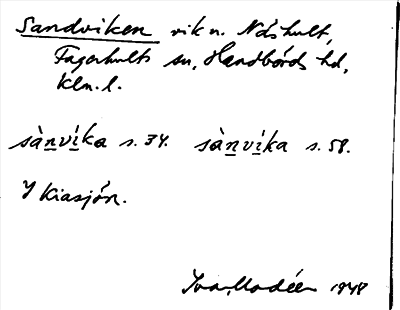 Sandviken vik n. Näshult,
Fagerhults sn, Handbörds hd,
Klm. l.
sànvíka s. 34. sànvíka s. 58.
I Kiasjön.
Ivar Modéer 1948